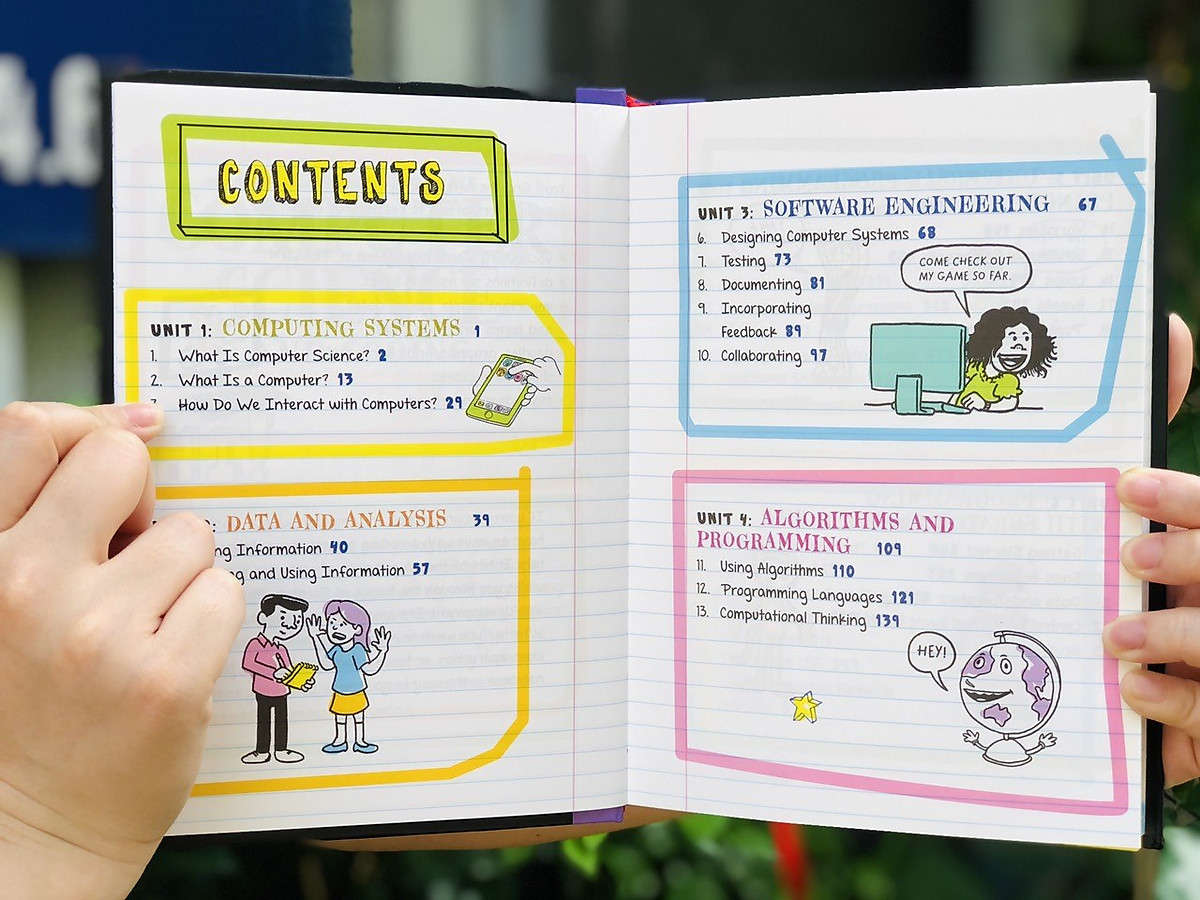 4.6
CONTENTS
UNIT 1: COMPUTING SYSTEMS 1
1. What Is Computer Science? 2
2. What Is a Computer? 13
How Do We Interact with Computers? 29
: DATA AND ANALYSIS 39
ng Information 40
g and Using Information 57
UNIT 3: SOFTWARE ENGINEERING 67
6. Designing Computer Systems 68
7. Testing 73
8. Documenting 81
9. Incorporating
Feedback 89
10. Collaborating 97
COME CHECK OUT
MY GAME SO FAR.
UNIT 4: ALGORITHMS AND
PROGRAMMING 109
11. Using Algorithms 110
12. Programming Languages 121
13. Computational Thinking 139
HEY!